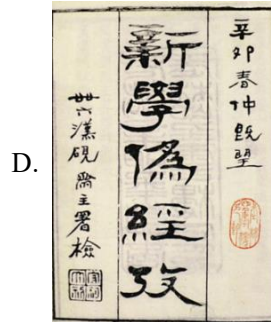 D.
辛卯春仲旣望
新學偽經攷
廿六漢硯齋主署檢